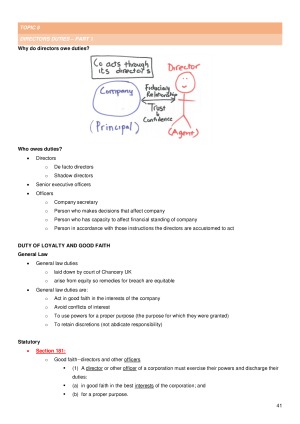 TOPIC 8
DIRECTORS DUTIES – PART 1
Why do directors owe duties?
Co acts through
its directors
Director
Company
Fiduciary
Relationship
Trust
&
Confidence
(Principal)
(Agent)
Who owes duties?
• Directors
o De facto directors
o Shadow directors
• Senior executive officers
• Officers
o Company secretary
o Person who makes decisions that affect company
o Person who has capacity to affect financial standing of company
o Person in accordance with those instructions the directors are accustomed to act
DUTY OF LOYALTY AND GOOD FAITH
General Law
• General law duties
o laid down by court of Chancery UK
o arise from equity so remedies for breach are equitable
• General law duties are:
o Act in good faith in the interests of the company
o Avoid conflicts of interest
o To use powers for a proper purpose (the purpose for which they were granted)
o To retain discretions (not abdicate responsibility)
Statutory
• Section 181:
o Good faith--directors and other officers
▪ (1) A director or other officer of a corporation must exercise their powers and discharge their
duties:
▪ (a) in good faith in the best interests of the corporation; and
▪ (b) for a proper purpose.
41